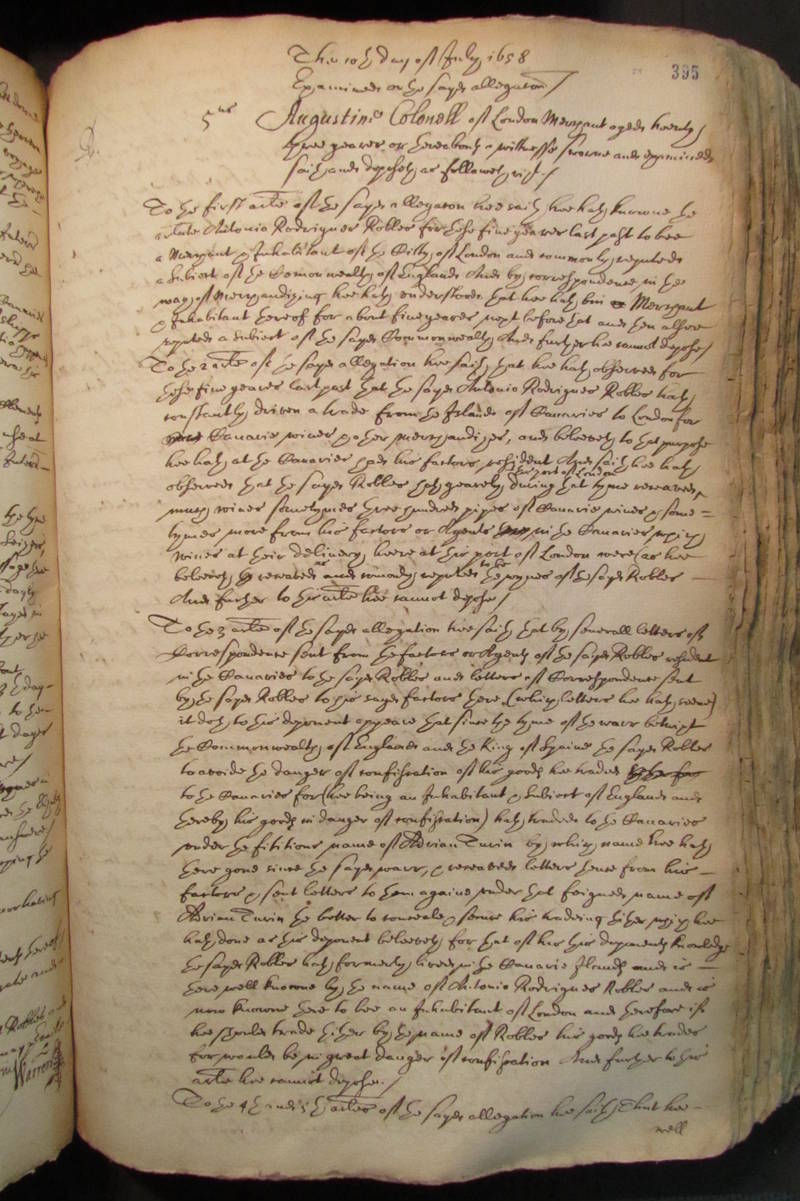 The 10th day of July 1658
395
Examined on the sayd allegation /
5us Augustine Colonell of London Merchant aged twenty
three yeares or thereabouts a witnesse sworne and examined
saith and deposeth as followeth vizt. /
To the first arte of the sayd allegaton hee saith hee hath knowne the
arlate Antonio Rodrigues Robles for these five yeares last past to bee
a Merchant & Inhabitant of the Citty of London and commonly reputed
a subiect of the Comonwealth of England And by correspondence in the
way of Merchandizing hee hath understoode that hee hath bin a Merchant
& Inhabitant thereof for about five yeares next before that and then alsoe
reputed a subiect of the sayd Commonwealth And further hee cannot depose /
To the 2 arte of the sayd allegation hee saith that hee hath observed for
these five yeares last past that the sayd Antonio Rodrigues Robles hath
constantly driven a trade from the Islands of Canaries to London for
Canarie wines & other merchandizes, and beleeveth to that purpose
hee hath at the Canaries had his factors resident And saith hee hath
the port of London
observed that the sayd Robles hath yearely during that tyme receaved
many wines sometymes three hundred pipes of Canarie wines & some=
tymes more from his factors or Agents in the Canaries which
wines at their delivery heere at this port of London were (as hee
beleeveth) receaved as and comonly reputed to be the wynes of the sayd Robles
And further to this arte hee cannot depose /
To the 3 arte of the sayd allegation hee saith that by severall letters of
Correspondence sent from the factors or Agents of the sayd Robles resident
in the Canaries to the sayd Robles and letters of Correspondence sent
by the sayd Robles to his sayd factors there (which letters hee hath seene)
it doth to this deponent appeare that since the tyme of the warr betwixt
the Commonwealth of England and the King of Spaine the sayd Robles
to avoide the danger of confiscation of his goods hee traded
to the Canaries for (hee being an Inhabitant & subiect of England and
thereby his goods in danger of confiscation) hath traded to the Canaries
under the fictitious name of Adrian Turin by which name hee hath
there gone since the sayd warr, & receaved letters thence from his
factors & sent letters to them againe under that feigned name of
Adrian Turin the better to conceale & secure his tradeing thither which hee
hath done as this deponent beleeveth for that of his this deponents knowledge
the sayd Robles hath formerly lived in the Canarie Islands and is
there well knowne by the name of Antonio Rodrigues Robles and is
now knowne there to bee an Inhabitant of London and therefore if
hee should trade thither by the name of Robles his goods hee trades
for would be in great danger of confiscation And further to this
arte hee cannot depose. /
To the 4th and 5th artes of the sayd allegation hee saith That hee
well